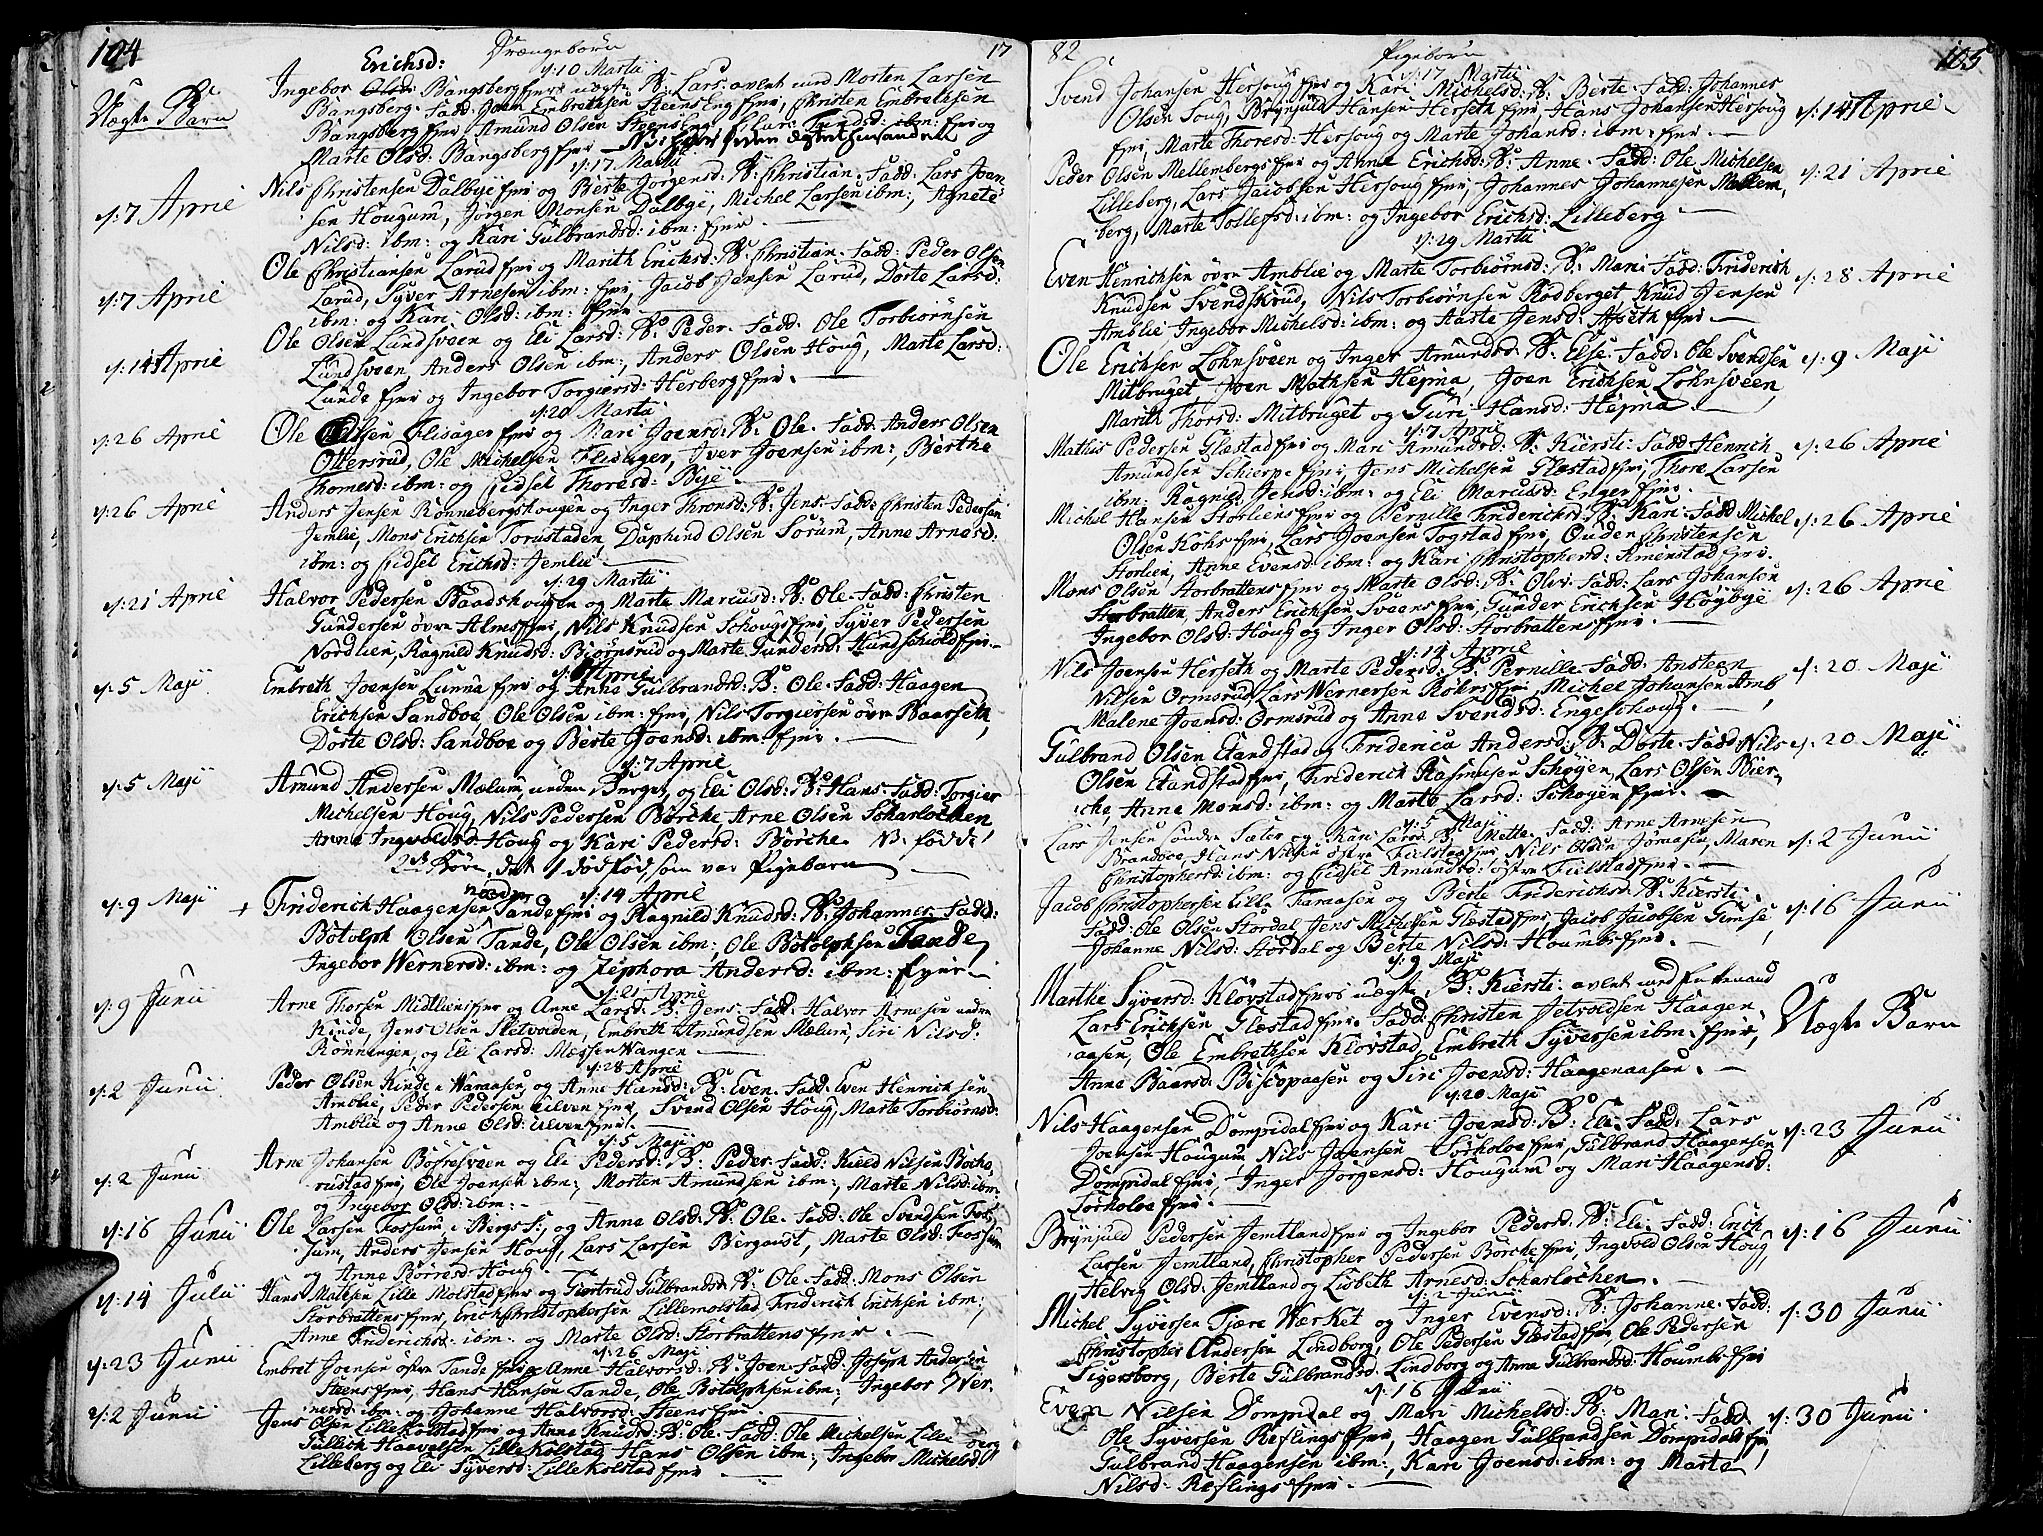 104 Drængebørn 17
Erichsd:
d: 10 Martii
Uægte Barn
Ingebor Bangsberg fjer: uægte B: Lars. avlet med Morten Larsen
Bangsberg. Fadd: Joen Embrethsen Steens Eng fjer, Christen Embrethsen
Bangsberg fjer, Amund Olsen Steens
Marte Olsd: Bangsberg fjer
d: 17 Martii
d: 7 April
Nils Christensen Dalbye fjer og Berte Jørgensd: B: Christian. Fadd: Lars Joen
sen Hougum, Jørgen Monsen Dalbye, Michel Larsen ibm:, Agnete
Nilsd: ibm: og Kari Gulbrandsd: ibm: fjer.
d: 7 April
Ole Christiansen Larud fjer og Marith Erichsd: B: Christian. Fadd: Peder Olsen
Larud, Syver Arnesen ibm: fjer, Jacob Jensen Larud, Dorte Larsd:
ibm: og Kari Olsd: ibm: fjer
d: 14 April
Ole Olsen Lundsveen og Eli Larsd: B: Peder. Fadd: Ole Torbiørnsen
Lundsveen, Anders Olsen ibm:, Anders Olsen Houg, Marte Larsd:
Lunde fjer og Ingebor Torgiersd: Herberg fjer.
d: 20 Martii
d: 26 April
Ole Olsen Flisager fjer og Mari Joensd: B: Ole. Fadd: Anders Olsen
Ottersrud, Ole Michelsen Flisager, Iver Joensen ibm:, Berthe
Thomesd: ibm: og Sidsel Thoresd: Bye.
d: 26 April
Anders Jensen Rønnebergshougen og Inger Thronsd: B: Jens. Fadd: Christen Pedersen
Jemlie, Mons Erichsen Torustaden, Daphind Olsen Sorum, Anne Arnesd:
ibm: og Sidsel Erichsd: Jemlie
d: 29 Martii
d: 21 April
Halvor Pedersen Baadshougen og Marte Marcusd: B: Ole. Fadd: Christen
Gundersen øvre Almes fjer, Nils Knudsen Schougs fjer, Syver Pedersen
Nordlien, Ragnild Knudsd: Biørnsrud og Marte Gundersd: Hundschiold fjer.
April
d: 5 Maji
Embreth Joensen Lunna fjer og Anne Gulbrandsd: B: Ole. Fadd: Haagen
Erichsen Sandboe, Ole Olsen ibm: fjer, Nils Torgiersen øvre Baarseth,
Dorte Olsd: Sandboe og Berte Joensd: ibm: fjer.
d: 7 April
d: 5 Maji
Amund Andersen Mælum, neden Burget, og Eli Olsd: B: Hans. Fadd: Torgier
Michelsen Houg, Nils Pedersen Børche, Arne Olsen Scharlochen
Anne Ingvoldsd: Houg og Kari Pedersd: Børche. NB: fødde
2de Børn, det 1 dødfød, som var Pigebarn
d: 14 April
d: 9 Maji
Friderich Haagensen nedre Tande fjer og Ragnild Knudsd: B: Johannes. Fadd:
Botolph Olsen Tande, Ole Olsen ibm:, Ole Botolphsen Tande,
Ingebor Wernersd: ibm: og Ziphora Andersd: ibm: fjer.
d: 21 April
d: 9 Junii
Arne Thorsen Midtliens fjer og Anne Larsd: B: Jens. Fadd: Halvor Arnesen nedre
Kinde, Jens Olsen Sletvolden, Embreth Amundsen Mælum, Siri Nilsd:
Rønningen, og Eli Larsd: Messen Wangen
d: 28 April
d: 2 Junii
Peder Olsen Kinde i Waraasen og Anne Hansd: B: Even. Fadd: Even Henrichsen
Amblie, Peder Pedersen Ulven fjer, Svend Olsen Houg, Marte Torbiørnsd:
Amblie og Anne Olsd: Ulven fjer.
d: 5 Maji
d: 2 Junii
Arne Johansen Bøsresveen og Eli Pedersd: B: Peder. Fadd: Kield Nilsen Bocho
rustad fjer, Ole Joensen ibm:, Morten Amundsen ibm:, Marte Nilsd: ibm:
og Ingebor Olsd: ibm:
d: 16 Junii
Ole Larsen Fossum i Bergs S:, og Anne Olsd: B: Ole. Fadd: Ole Svendsen Fos
sum, Anders Jensen Houg, Lars Larsen Bergqvist, Marte Olsd: Fossum
og Anne Børresd: Houg.
d: 14 Julii
Hans Mathsen Lille Molstad fjer og Giertrud Gulbrandsd: B: Ole. Fadd: Mons Olsen
Storbrattens fjer, Erich Christophersen Lillemolstad, Friderich Erichsen ibm:,
Anne Friderichsd: ibm: og Marte Olsd: Storbrattens fjer.
d: 26 Maji
d: 23 Junii
Embret Joensen østre Tande fjer og Anne Halvorsd: B: Joen. Fadd: Joseph Andersen
Steens fjer, Hans Hansen Tande, Ole Botolphsen ibm:, Ingebor Wer
nersd: ibm: og Johanne Halvorsd: Steens fjer.
d: 2 Junii
Jens Olsen Lille Kolstad fjer og Anne Knudsd: B: Ole. Fadd: Ole Michelsen Lille
berg
Gullich Haavelsen Lille Kolstad, Hans Olsen ibm:, Ingebor Michelsd:
Lilleberg og Eli Syversd: Lille Kolstad fjer
82 Pigebørn 105
d: 17 Martii
Svend Johansen Hersoug fjer og Kari Michelsd: B: Berte. Fadd: Johannes
Olsen Soug, Brynjuld Hansen Herseth fjer, Hans Johansen Hersoug
fjer, Marte Thoresd: Hersoug og Marte Johansd: ibm: fjer.
d: 14 April
Peder Olsen Mellembergs fjer og Anne Erichsd: B: Anne. Fadd: Ole Michelsen
Lilleberg, Lars Jacobsen Hersoug fjer, Johannes Johannesen Mellem
berg, Marte Tollefsd: ibm: og Ingebor Erichsd: Lilleberg
d: 21 April
d: 29 Martii
Even Henrichsen øvre Amblie og Marte Torbiørnsd: B: Mari. Fadd: Friderich
Knudsen Svendskrud, Nils Torbiørnsen Rodberget, Knud Jensen
Amblie, Ingebor Michelsd: ibm: og Aaste Jensd: Aaseth fjer.
d: 28 April
Ole Erichsen Løhnsveen og Inger Amundsd: B: Else. Fadd: Ole Svendsen
Mitbruget, Joen Mathsen Hejma, Joen Erichsen Løhnsveen,
Marith Thorsd: Mitbruget og Guri Hansd: Hejma
d: 9 Maji
d: 7 April
Mathis Pedersen Glæstad fjer og Mari Amundsd: B: Kiersti. Fadd: Henrich
Amundsen Schierpe fjer, Jens Michelsen Glæstad fjer, Thore Larsen
ibm: Ragnild Jensd: ibm: og Eli Marcusd: Enger fjer.
d: 26 April
Michel Hansen Storliens fjer og Pernille Friderichsd: B: Kari. Fadd: Michel
Olsen Kohs fjer, Lars Joensen Togstad fjer, Ouden Christensen
Storlien, Anne Evensd: ibm: og Kari Christophersd: Amenstad fjer.
d: 26 April
Mons Olsen Storbrattens fjer og Marte Olsd: B: Olvi. Fadd: Lars Johansen
Storbratten, Anders Erichsen Sveens fjer, Gunder Erichsen Høybye
Ingebor Olsd: Houg og Inger Olsd: Storbrattens fjer.
d: 26 April
d: 14 April
Nils Joensen Herseth og Marte Pedersd: B: Pernille. Fadd: Ansteen
Nilsen Ormsrud, Lars Wernersen Røhrs fjer, Michel Johansen Amb,
Malene Joensd: Ormsrud og Anne Svendsd: Engeschoug.
d: 20 Maji
Gulbrand Olsen Etandstad og Friderica Andersd: B: Dorte. Fadd: Nils
Olsen Etandstad fjer, Friderich Rasmusen Schøyen, Lars Olsen Bier
che, Anne Monsd: ibm: og Marte Larsd: Schøyen fjer.
d: 20 Maji
d: 5 Maji
Lars Jensen søndre Sæter og Kari Larsd: B: Mette. Fadd: Arne Arnesen
Brandboe, Hans Nilsen østre Fielstad fjer, Nils Olsen Jønaasen, Maren
Christophersd: ibm: og Sidsel Amundsd: østre Fielstad fjer.
d: 2 Junii
Jacob Christophersen Lille Faraasen og Berte Friderichsd: B: Kiersti.
Fadd: Ole Olsen Stordal, Jens Michelsen Glæstad fjer, Jacob Jacobsen Gimse,
Johanne Nilsd: Stordal og Berte Nilsd: Houmbs fjer.
d: 16 Junii
d: 9 Maji
Marthe Syversd: Kløvstad fjers uægte B: Kiersti. avlet med Enkemand
Lars Erichsen Glæstad fjer. Fadd: Christen Jetvoldsen Haagen
aasen, Ole Embrethsen Kløvstad, Embreth Syversen ibm: fjer,
Anne Baarsd: Biscopaasen og Siri Joensd: Haagenaasen.
Uægte Barn
d: 20 Maji
Nils Haagensen Dompidal fjer og Kari Joensd: B: Eli. Fadd: Lars
Joensen Hougum, Nils Joensen Torkoloe fjer, Gulbrand Haagensen
Dompidal fjer, Inger Jørgensd: Hougum og Mari Haagensd:
Torkoloe fjer.
d: 23 Junii
Brynjuld Pedersen Jemtland fjer og Ingebor Pedersd: B: Eli. Fadd: Erich
Larsen Jemtland, Christopher Pedersen Børche fjer, Ingvold Olsen Houg,
Helvig Olsd: Jemtland og Lisbeth Arnesd: Scharlochen.
d: 16 Junii
d: 2 Junii
Michel Syversen Tjære Wærket og Inger Evensd: B: Johanne. Fadd:
Christopher Andersen Lindborg, Ole Pedersen Glæstad fjer, Ole Pedersen
Sigersborg, Berte Gulbrandsd: Lindborg og Anna Gulbrandsd: Houmbs fjer
d: 30 Junii
d: 16 Junii
Even Nilsen Dompidal og Mari Michelsd: B: Mari. Fadd:
Ole Syversen Reflings fjer, Haagen Gulbrandsen Dompidal fjer,
Gulbrand Haagensen ibm:, Kari Joensd: ibm: og Marte
Nilsd: Reflings fjer.
d: 30 Junii